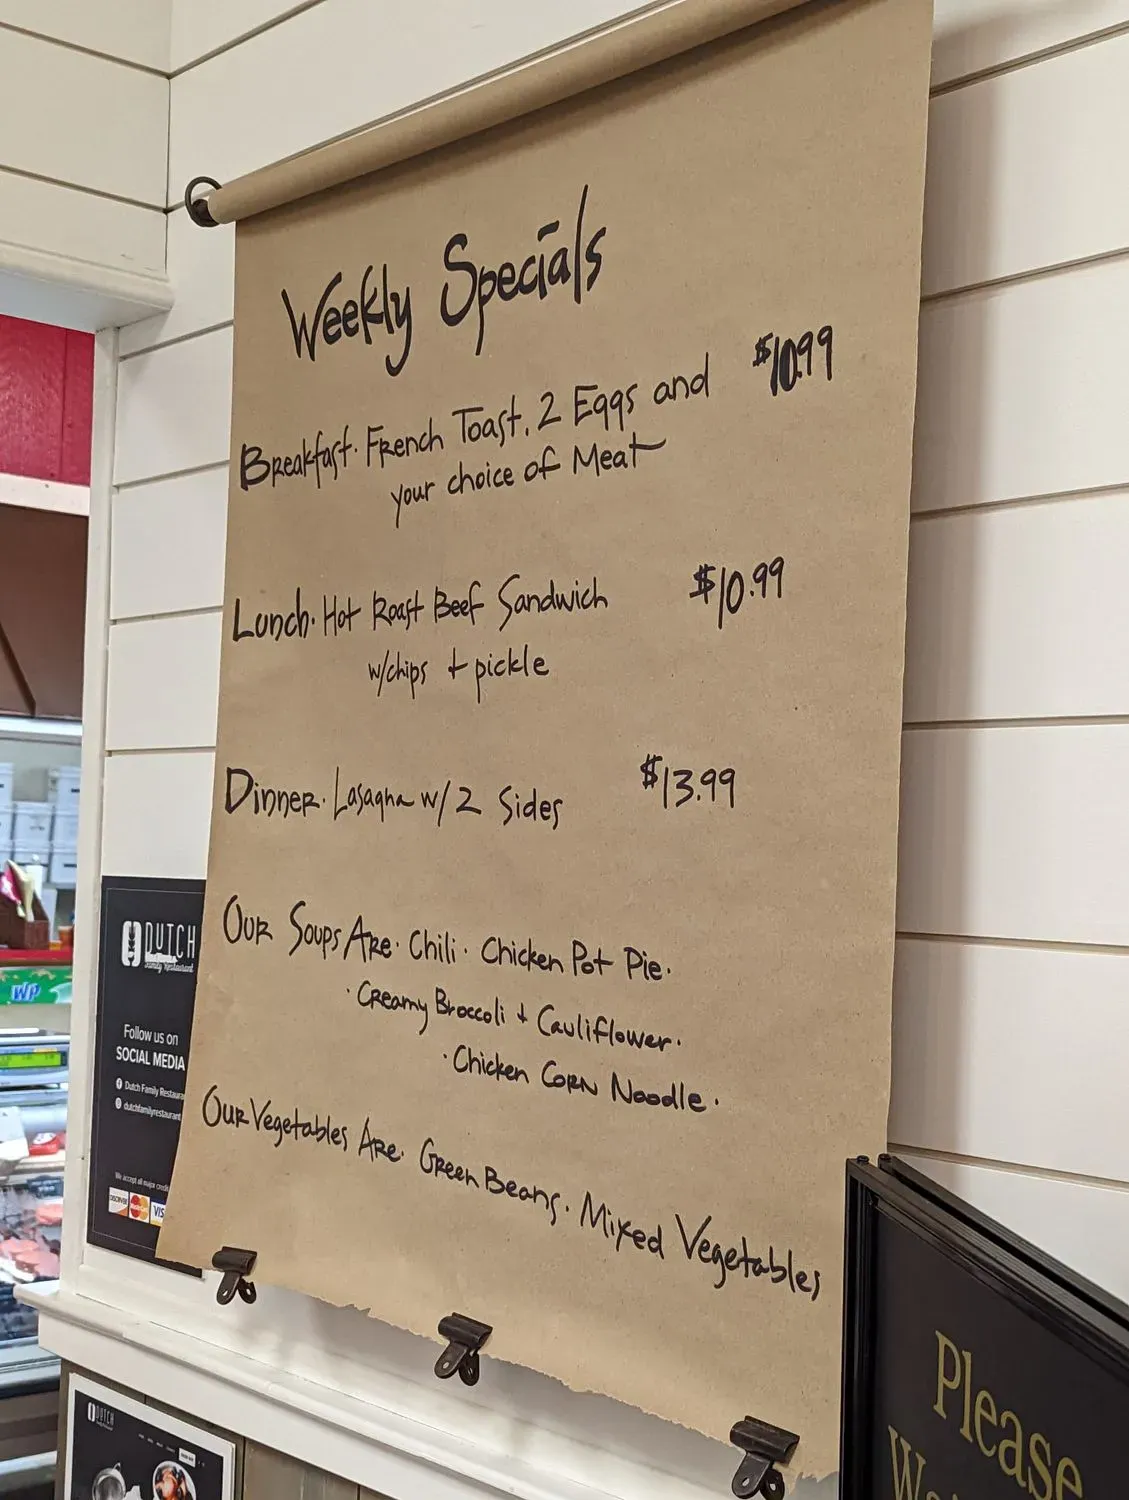 Weekly Specials
Breakfast. French Toast, 2 Eggs and $10.99
your choice of Meat
Lunch. Hot Roast Beef Sandwich $10.99
w/chips + pickle
Dinner. Lasagna w/ 2 Sides $13.99
Our Soups Are. Chili. Chicken Pot Pie.
. Creamy Broccoli + Cauliflower.
. Chicken Corn Noodle.
Our Vegetables Are. Green Beans. Mixed Vegetables
DUTCH
Family Restaurant
Follow us on
SOCIAL MEDIA
Dutch Family Restaura
dutchfamilyrestaurant
We accept all major credi
DISCOVER
VIS
WP
DUTCH
Please